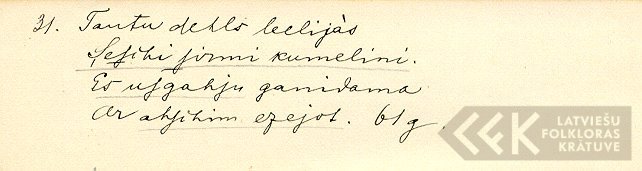 31. Tautu dehls leelijàs
Seschi sirmi kumelini.
Es usgahju ganidama
Ar ahschim ezejot. 61g.
LATVIEŠU
FOLKLORAS
KRĀTUVE